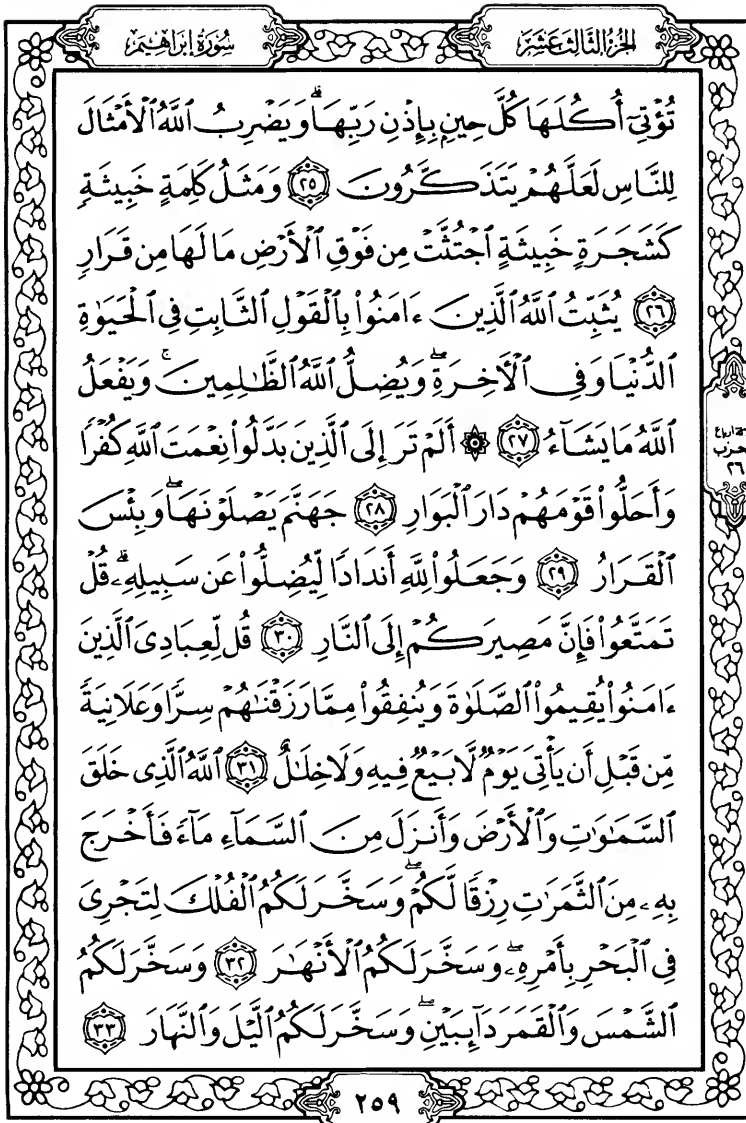 الجزء الثالث عشر
سورة إبراهيم
تُؤْتِىٓ أُكُلَهَا كُلَّ حِينٍۭ بِإِذْنِ رَبِّهَاۗ وَيَضْرِبُ ٱللَّهُ ٱلْأَمْثَالَ
لِلنَّاسِ لَعَلَّهُمْ يَتَذَكَّرُونَ ٢٥ وَمَثَلُ كَلِمَةٍ خَبِيثَةٍ
كَشَجَرَةٍ خَبِيثَةٍ ٱجْتُثَّتْ مِن فَوْقِ ٱلْأَرْضِ مَا لَهَا مِن قَرَارٍ
٢٦ يُثَبِّتُ ٱللَّهُ ٱلَّذِينَ ءَامَنُوا۟ بِٱلْقَوْلِ ٱلثَّابِتِ فِى ٱلْحَيَوٰةِ
ٱلدُّنْيَا وَفِى ٱلْأَخِرَةِۖ وَيُضِلُّ ٱللَّهُ ٱلظَّٰلِمِينَۚ وَيَفْعَلُ
ٱللَّهُ مَا يَشَآءُ ٢٧ ۞ أَلَمْ تَرَ إِلَى ٱلَّذِينَ بَدَّلُوا۟ نِعْمَتَ ٱللَّهِ كُفْرًا
وَأَحَلُّوا۟ قَوْمَهُمْ دَارَ ٱلْبَوَارِ ٢٨ جَهَنَّمَ يَصْلَوْنَهَاۖ وَبِئْسَ
ٱلْقَرَارُ ٢٩ وَجَعَلُوا۟ لِلَّهِ أَندَادًا لِّيُضِلُّوا۟ عَن سَبِيلِهِۦۗ قُلْ
تَمَتَّعُوا۟ فَإِنَّ مَصِيرَكُمْ إِلَى ٱلنَّارِ ٣٠ قُل لِّعِبَادِىَ ٱلَّذِينَ
ءَامَنُوا۟ يُقِيمُوا۟ ٱلصَّلَوٰةَ وَيُنفِقُوا۟ مِمَّا رَزَقْنَٰهُمْ سِرًّا وَعَلَانِيَةً
مِّن قَبْلِ أَن يَأْتِىَ يَوْمٌ لَّا بَيْعٌ فِيهِ وَلَا خِلَٰلٌ ٣١ ٱللَّهُ ٱلَّذِى خَلَقَ
ٱلسَّمَٰوَٰتِ وَٱلْأَرْضَ وَأَنزَلَ مِنَ ٱلسَّمَآءِ مَآءً فَأَخْرَجَ
بِهِۦ مِنَ ٱلثَّمَرَٰتِ رِزْقًا لَّكُمْۖ وَسَخَّرَ لَكُمُ ٱلْفُلْكَ لِتَجْرِىَ
فِى ٱلْبَحْرِ بِأَمْرِهِۦۖ وَسَخَّرَ لَكُمُ ٱلْأَنْهَٰرَ ٣٢ وَسَخَّرَ لَكُمُ
ٱلشَّمْسَ وَٱلْقَمَرَ دَآئِبَيْنِۖ وَسَخَّرَ لَكُمُ ٱلَّيْلَ وَٱلنَّهَارَ ٣٣
أرباع
حزب
٢٦
٢٥٩